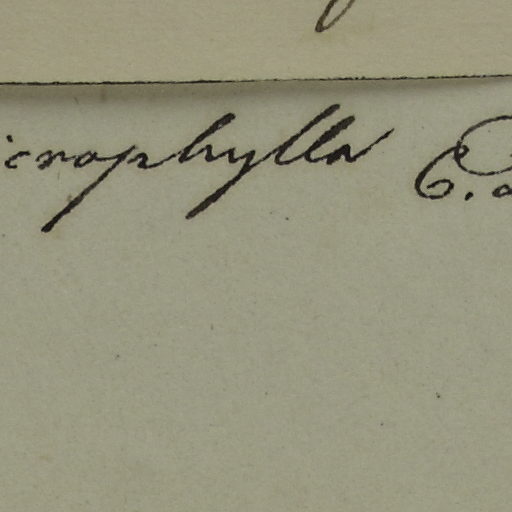 icrophylla C.